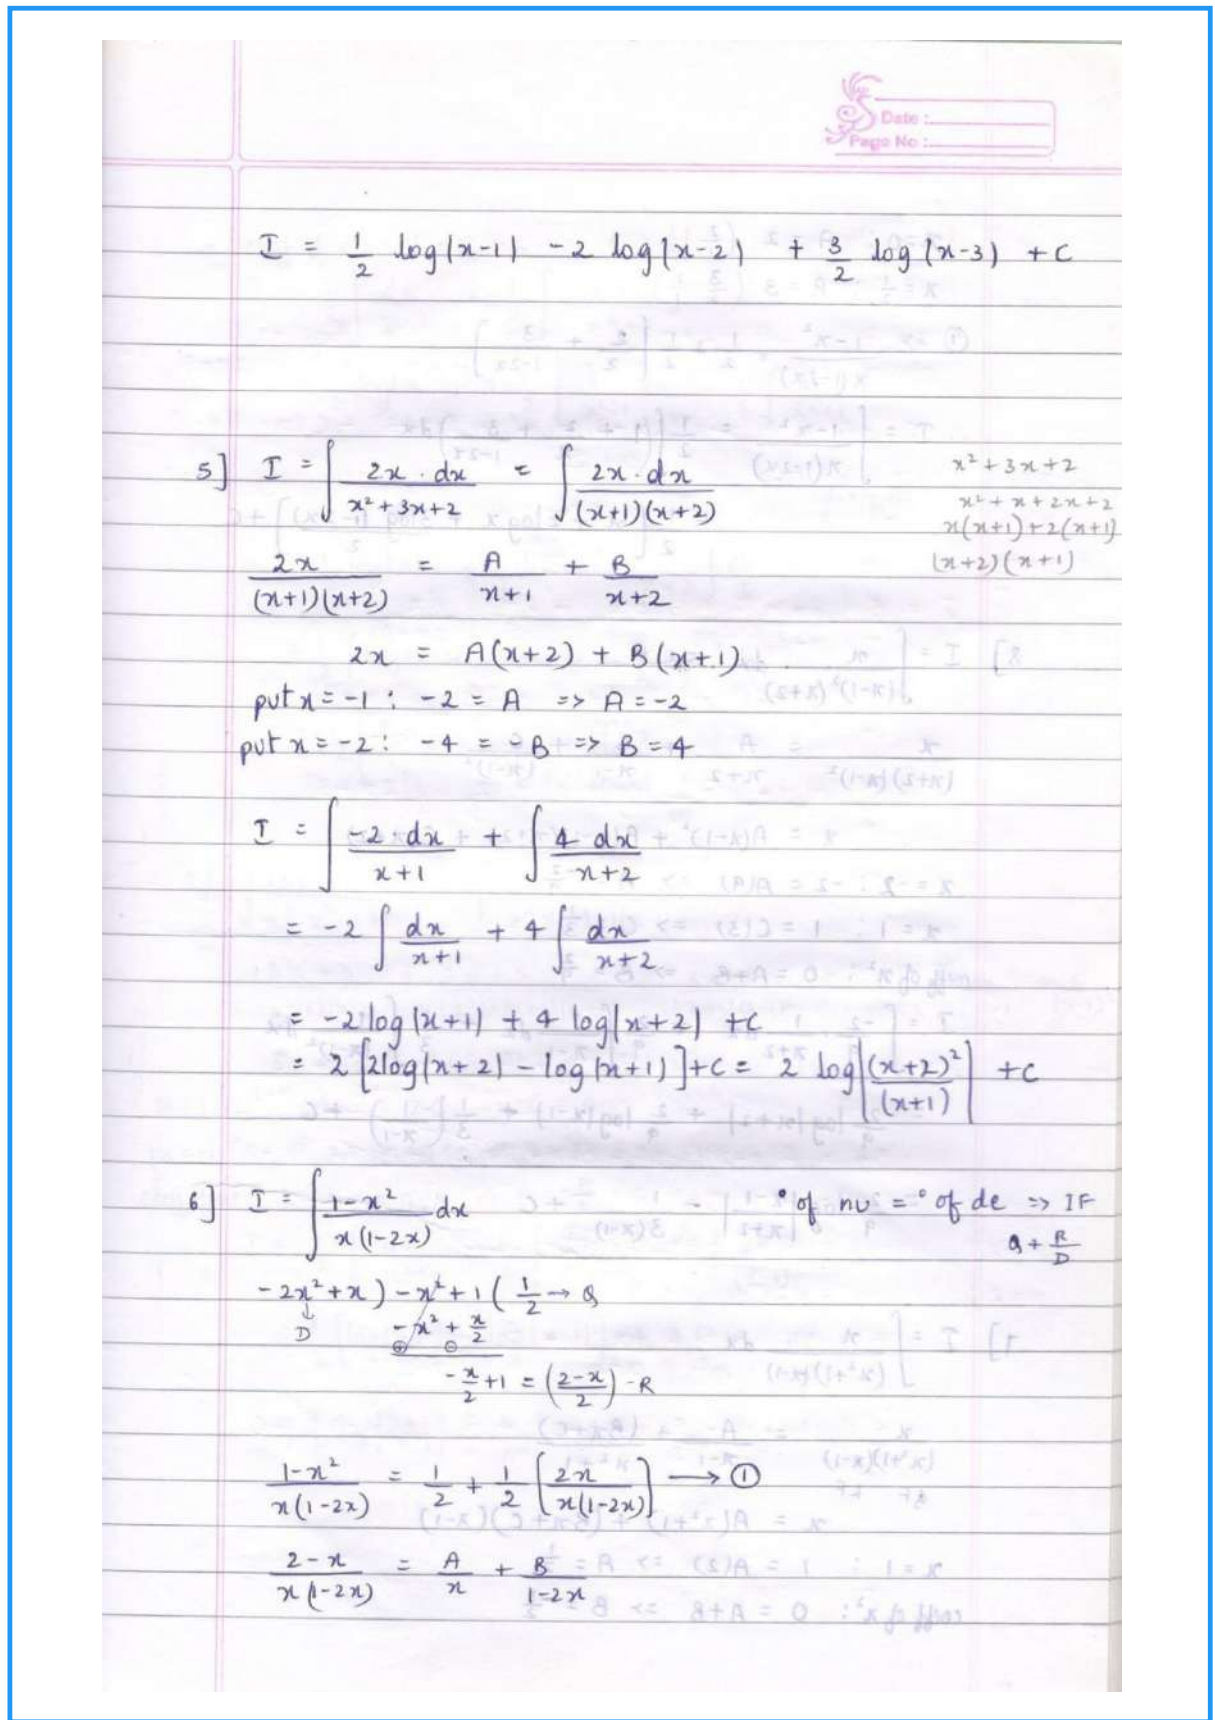 Date :
Page No :
I = 1/2 log|x-1| - 2 log|x-2| + 3/2 log|x-3| + C
5] I = ∫ 2x · dx / x² + 3x + 2 = ∫ 2x · dx / (x+1)(x+2)
x² + 3x + 2
x² + x + 2x + 2
x(x+1) + 2(x+1)
(x+2)(x+1)
2x / (x+1)(x+2) = A / x+1 + B / x+2
2x = A(x+2) + B(x+1)
put x = -1 : -2 = A => A = -2
put x = -2 : -4 = -B => B = 4
I = ∫ -2 · dx / x+1 + ∫ 4 dx / x+2
= -2 ∫ dx / x+1 + 4 ∫ dx / x+2
= -2 log|x+1| + 4 log|x+2| + C
= 2 [2log|x+2| - log|x+1|] + C = 2 log |(x+2)² / (x+1)| + C
6] I = ∫ 1-x² / x(1-2x) dx ° of nu = ° of de => IF
Q + R/D
-2x² + x ) -x² + 1 ( 1/2 → Q
↓
D
-x² + x/2
⊕ ⊖
-x/2 + 1 = (2-x / 2) - R
1-x² / x(1-2x) = 1/2 + 1/2 [2x / x(1-2x)] → ①
2-x / x(1-2x) = A/x + B / 1-2x